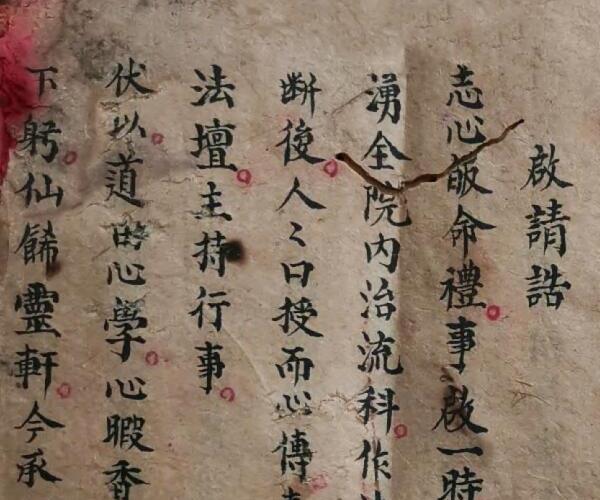 啟請誥
志心皈命禮事啟一時
湧全院内治流科作
断後人〻口授而心傳
法壇主持行事
伏以道由心學心暇香
下躬仙餙靈軒今承